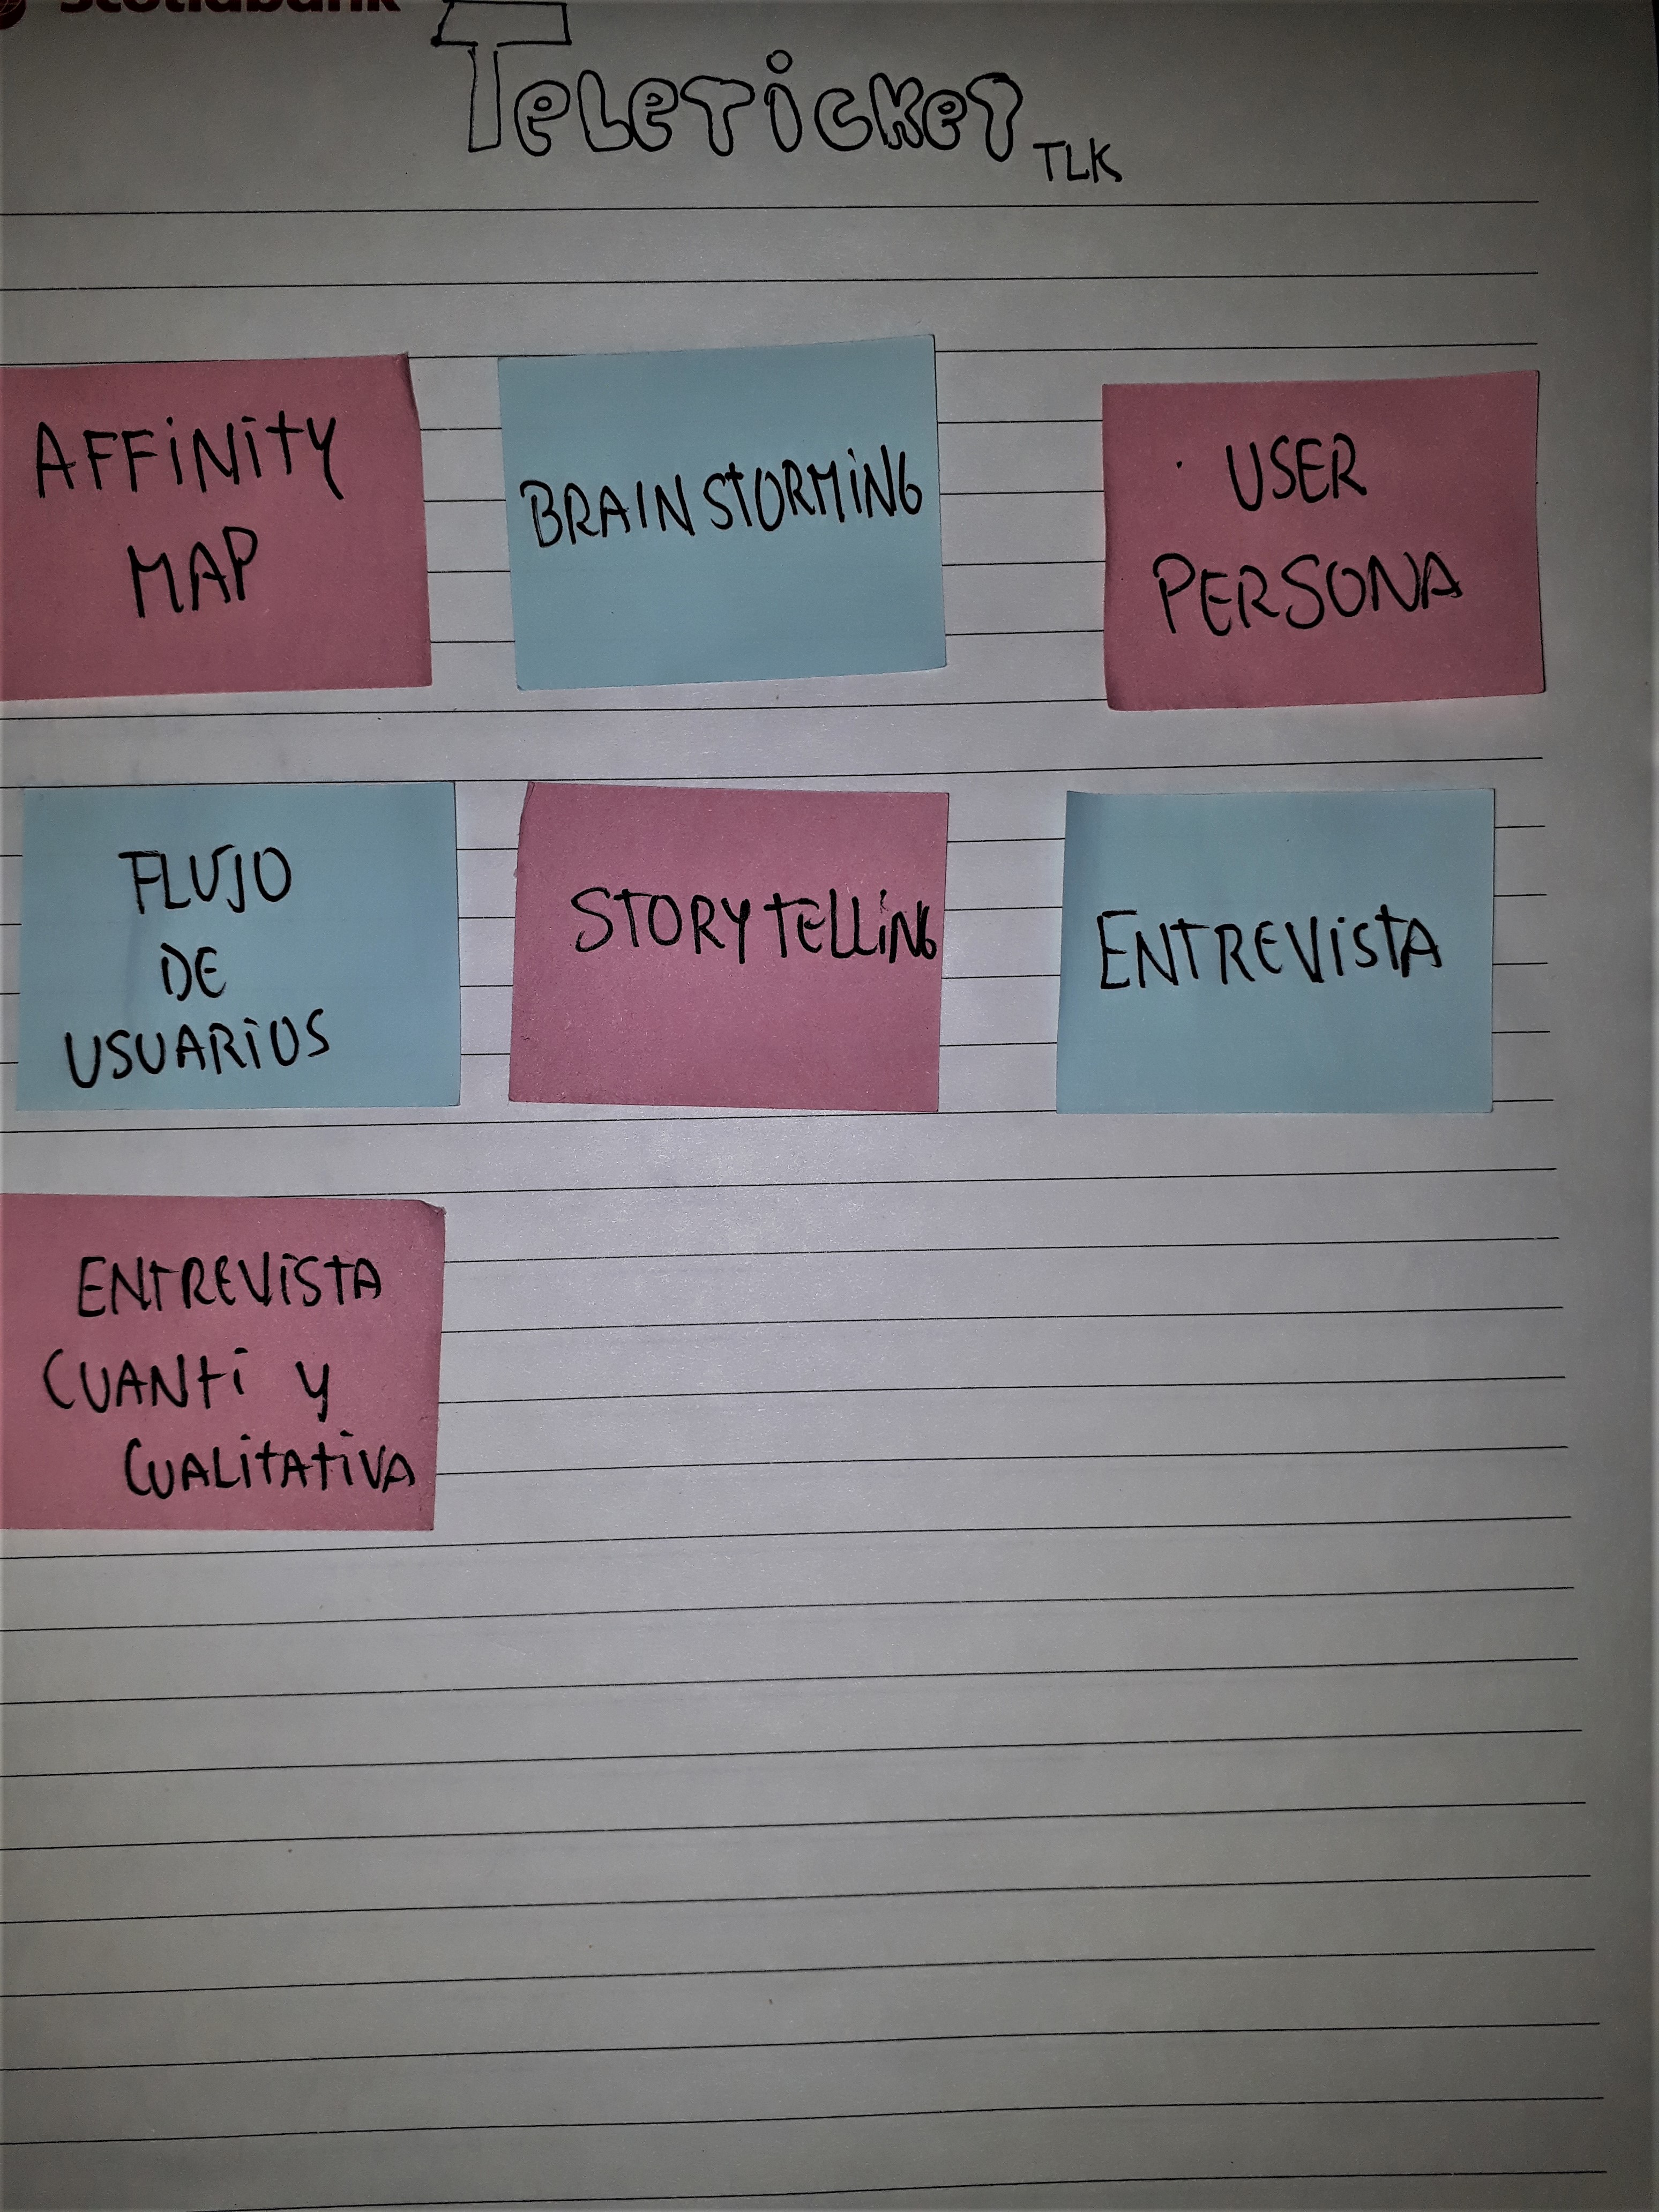 Scotiabank
TELETICKET TLK
AFFINITY
MAP
BRAIN STORMING
USER
PERSONA
FLUJO
DE
USUARIOS
STORY TELLING
ENTREVISTA
ENTREVISTA
CUANTI Y
CUALITATIVA